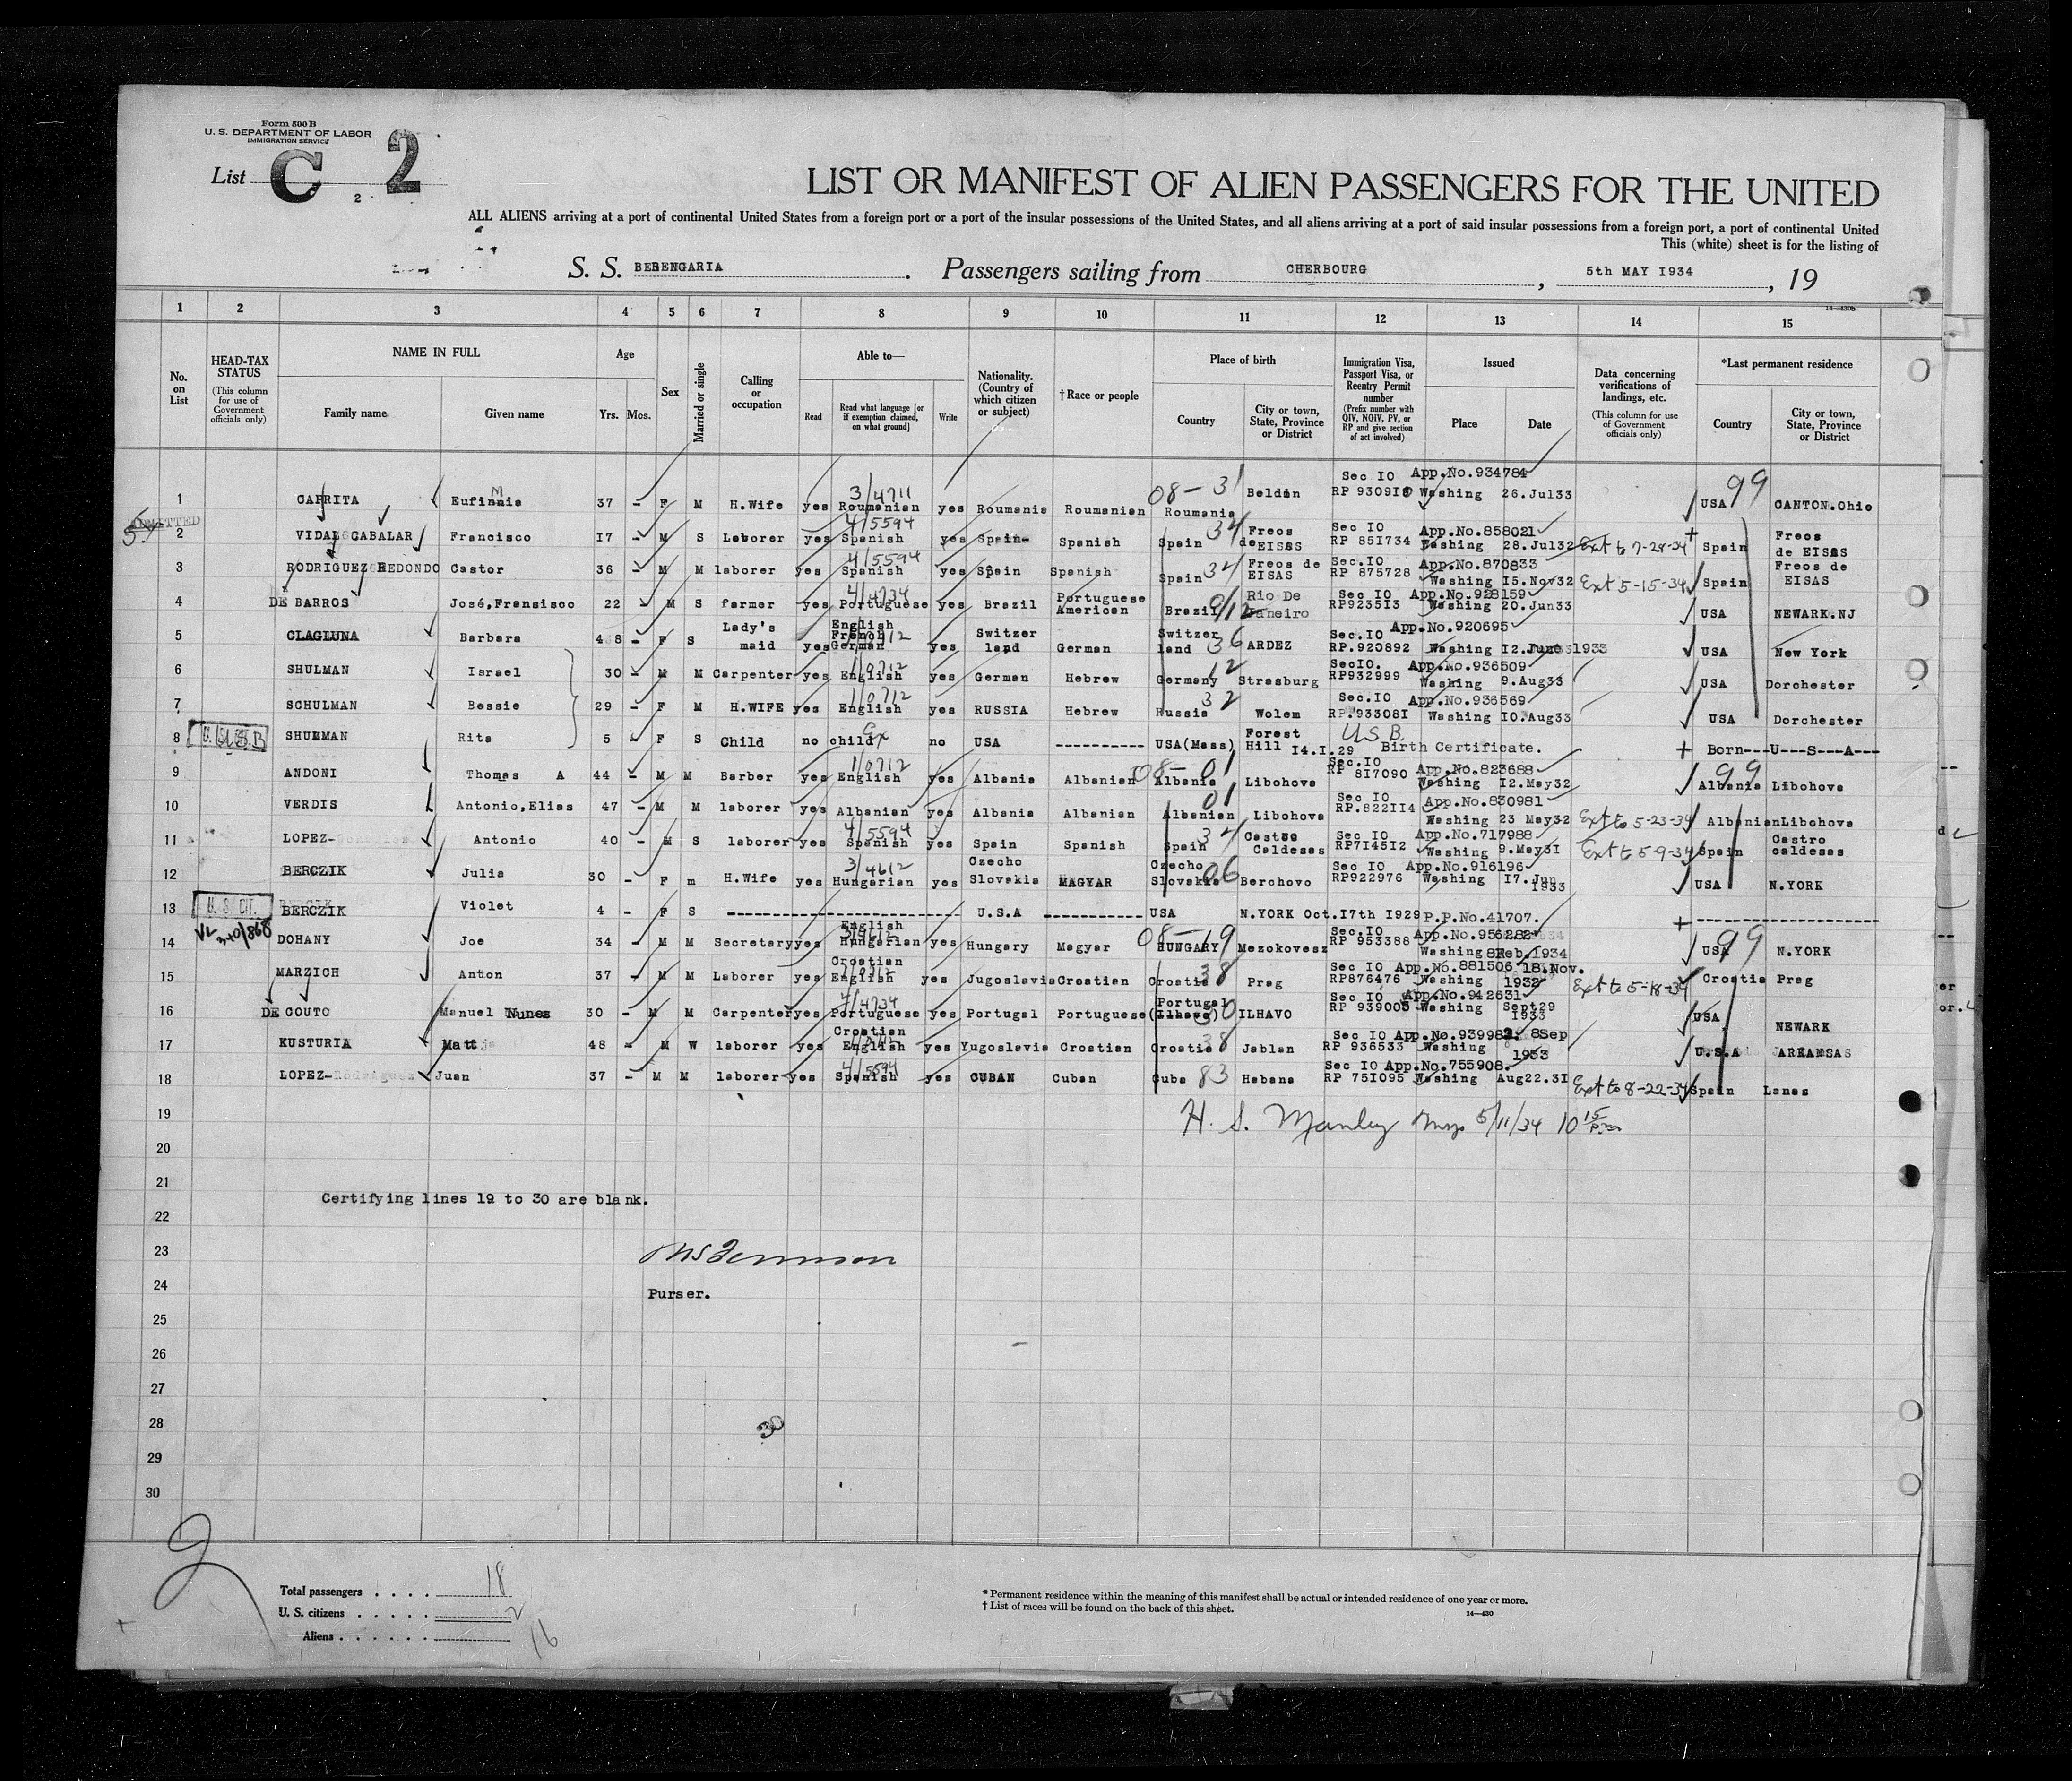 Form 500 B
U. S. DEPARTMENT OF LABOR
IMMIGRATION SERVICE
List C 2 2
LIST OR MANIFEST OF ALIEN PASSENGERS FOR THE UNITED
ALL ALIENS arriving at a port of continental United States from a foreign port or a port of the insular possessions of the United States, and all aliens arriving at a port of said insular possessions from a foreign port, a port of continental United
This (white) sheet is for the listing of
S. S. BERENGARIA. Passengers sailing from CHERBOURG, 5th MAY I934, 19
1 2 3 4 5 6 7 8 9 10 11 12 13 14 15
14—430b
No. on List
HEAD-TAX STATUS (This column for use of Government officials only)
NAME IN FULL Family name Given name
Age Yrs. Mos.
Sex
Married or single
Calling or occupation
Able to— Read Read what language [or if exemption claimed, on what ground] Write
Nationality. (Country of which citizen or subject)
†Race or people
Place of birth Country City or town, State, Province or District
Immigration Visa, Passport Visa, or Reentry Permit number (Prefix number with QIV, NQIV, PV, or RP and give section of act involved)
Issued Place Date
Data concerning verifications of landings, etc. (This column for use of Government officials only)
*Last permanent residence Country City or town, State, Province or District
1 CARRITA 37 - F M H.Wife yes 3/4711 Roumanian yes Roumania Roumanian 08-31 Roumania Beldin Sec IO App.No.934784 Washing 26.Jul33 USA 99 CANTON.Ohio
ADMITTED
2 VIDAL CABALAR Francisco I7 - M S Laborer yes 4/5594 Spanish yes Spain Spanish Spain 34 Freos de EISAS Sec IO RP 85I734 App.No.858021 Washing 28.Jul32 Ext to 7-28-34 Spain Freos de EISAS
3 RODRIGUEZ REDONDO Castor 36 - M M laborer yes 4/5594 Spanish yes Spain Spanish Spain 34 Freos de EISAS Sec.IO RP 875728 App.No.870833 Washing I5.Nov32 Ext 5-15-34 Spain Freos de EISAS
4 DE BARROS José,Fransisco 22 M S farmer yes 4/4734 Portuguese yes Brazil Portuguese American Brazil Rio De Janeiro Sec IO RP9235I3 App.No.928159 Washing 20.Jun33 USA NEWARK.NJ
5 CLAGLUNA Barbara 48 - F S Lady's maid yes English French German yes Switzer land German Switzer land 36 ARDEZ Sec.IO RP.920892 App.No.920695 Washing I2.June 1933 USA New York
6 SHULMAN Israel 30 - M M Carpenter yes 1/0712 English yes German Hebrew Germany 12 Strasburg SecIO. RP932999 App.No.936509 Washing 9.Aug33 USA Dorchester
7 SCHULMAN Bessie 29 - F M H.WIFE yes 1/0712 English yes RUSSIA Hebrew Russia 32 Wolem Sec.IO RP.93308I App.No.936569 Washing IO.Aug33 USA Dorchester
8 USB Rita 5 F S Child no child no USA ---------- USA(Mass) Forest Hill I4.I.29 USB Birth Certificate. Born---U---S---A---
9 ANDONI Thomas A 44 - M M Barber yes 1/0712 English yes Albania Albanian 08-01 Albania Libohova Sec.IO RP 8I7090 App.No.823688 Washing I2.May32 99 Albania Libohova
10 VERDIS Antonio,Elias 47 - M M laborer yes Albanian yes Albania Albanian 01 Albanian Libohova Sec IO RP.822II4 App.No.830981 Washing 23 May32 Ext to 5-23-34 Albanian Libohova
11 LOPEZ- Antonio 40 - M S laborer yes 4/5594 Spanish yes Spain Spanish Spain 34 Castro Caldesas Sec IO RP7I45I2 App.No.717988 Washing 9.May3I Ext to 5-9-34 Spain Castro caldesas
12 BERCZIK Julia 30 - F m H.Wife yes 3/4612 Hungarian yes Czecho Slovakia MAGYAR Czecho Slovakia 06 Berchovo Sec IO RP922976 App.No.916196 Washing I7.Jun 1933 USA N.YORK
13 U.S. CIT. BERCZIK Violet 4 - F S ---------- U.S.A ---------- USA N.YORK Oct.I7th I929 P.P.No.41707. ----------
VL 340/868
14 DOHANY Joe 34 - M M Secretary yes English Hungarian yes Hungary Magyar 08-19 HUNGARY Mezokovesz Sec.IO RP 953388 App.No.956282 Washing 8Feb.1934 USA 99 N.YORK
15 MARZICH Anton 37 - M M Laborer yes Croatian English yes Jugoslavia Croatian Croatia 38 Prag Sec IO RP876476 App.No.881506 Washing 18.Nov. 1932 Ext to 5-18-34 Croatia Prag
16 DE COUTO Manuel Nunes 30 - M M Carpenter yes 4/4734 Portuguese yes Portugal Portuguese Portugal (Ilhavo) 30 ILHAVO Sec IO RP 939005 App.No.942631 Washing Sept29 1933 USA NEWARK
17 KUSTURIA Matt 48 - M W laborer yes Croatian English yes Yugoslavia Croatian Croatia 38 Jablan Sec IO RP 936533 App.No.939982 Washing 8Sep 1933 U.S.A ARKANSAS
18 LOPEZ-Rodriguez Juan 37 - M M laborer yes 4/5594 Spanish yes CUBAN Cuban Cuba 83 Habana Sec IO RP 75I095 App.No.755908. Washing Aug22.3I Ext to 8-22-34 Spain Lanes
19 H. S. Manley 5/11/34 10 15 pm
20
21 Certifying lines 19 to 30 are blank.
22
23
24 Purser.
25
26
27
28 30
29
30
2
Total passengers . . . . 18
U. S. citizens . . . . . 2
Aliens . . . . . . 16
* Permanent residence within the meaning of this manifest shall be actual or intended residence of one year or more.
† List of races will be found on the back of this sheet.
14—430